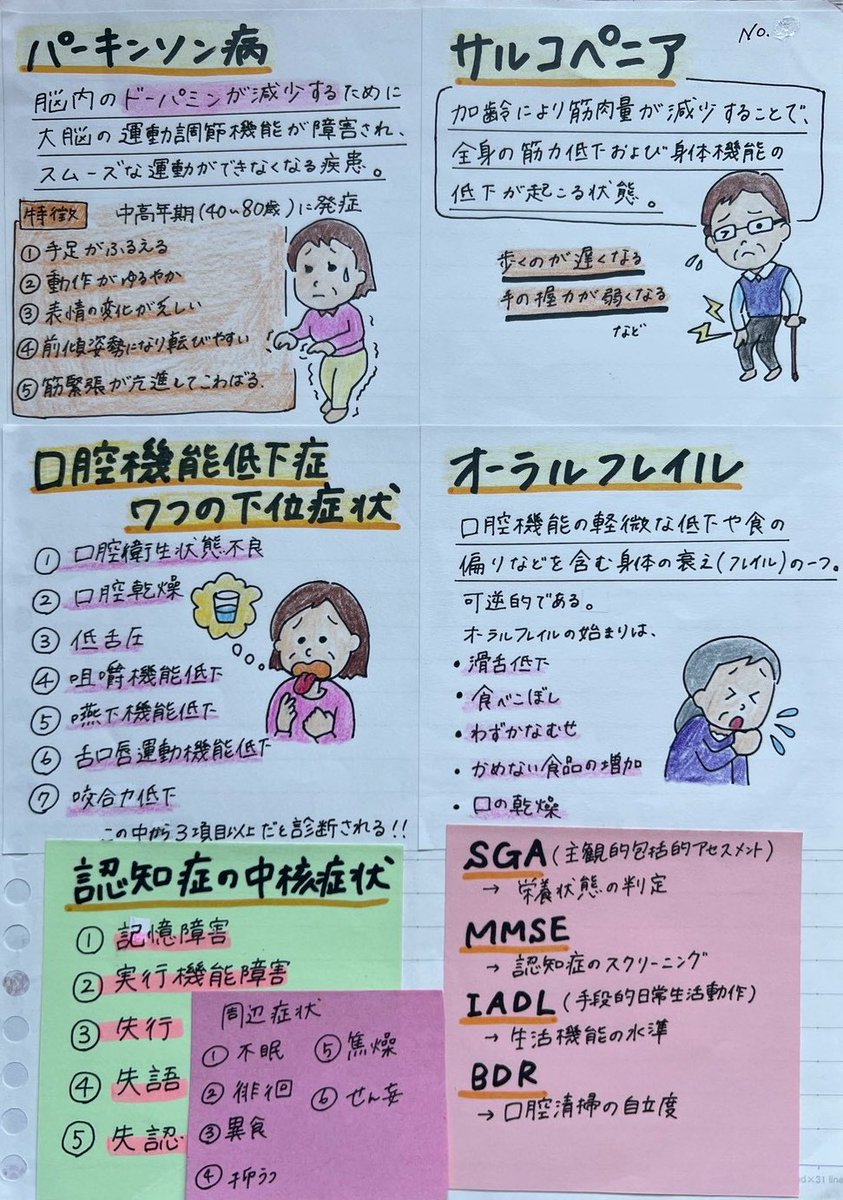 パーキンソン病
脳内のドーパミンが減少するために
大脳の運動調節機能が障害され、
スムーズな運動ができなくなる疾患。
特徴 中高年期(40~80歳)に発症
①手足がふるえる
②動作がゆるやか
③表情の変化が乏しい
④前傾姿勢になり転びやすい
⑤筋緊張が亢進してこわばる.
No.
サルコペニア
加齢により筋肉量が減少することで、
全身の筋力低下および身体機能の
低下が起こる状態。
歩くのが遅くなる
手の握力が弱くなる
など
口腔機能低下症
7つの下位症状
① 口腔衛生状態不良
② 口腔乾燥
③ 低舌圧
④ 咀嚼機能低下
⑤ 嚥下機能低下
⑥ 舌口唇運動機能低下
⑦ 咬合力低下
この中から3項目以上だと診断される!!
オーラルフレイル
口腔機能の軽微な低下や食の
偏りなどを含む身体の衰え(フレイル)の一つ。
可逆的である。
オーラルフレイルの始まりは、
・滑舌低下
・食べこぼし
・わずかなむせ
・かめない食品の増加
・口の乾燥
認知症の中核症状
① 記憶障害
② 実行機能障害
③ 失行
④ 失語
⑤ 失認
周辺症状
① 不眠
② 徘徊
③ 異食
④ 抑うつ
⑤ 焦燥
⑥ せん妄
SGA(主観的包括的アセスメント)
→ 栄養状態の判定
MMSE
→ 認知症のスクリーニング
IADL(手段的日常生活動作)
→ 生活機能の水準
BDR
→ 口腔清掃の自立度